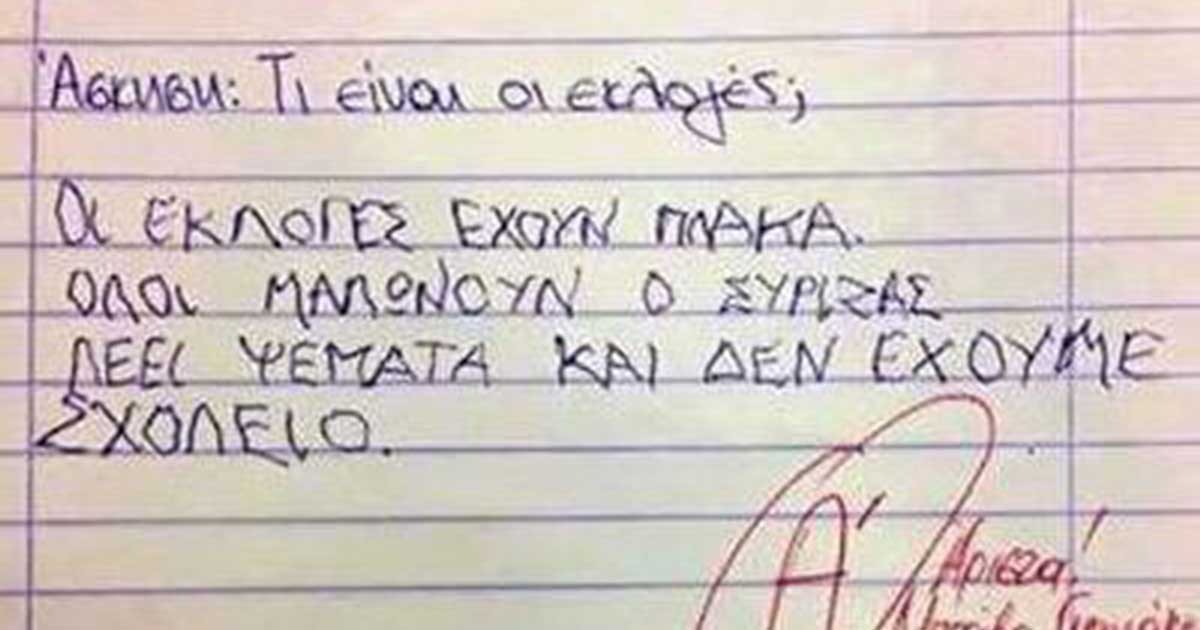 Άσκηση: Τι είναι οι εκλογές;
ΟΙ ΕΚΛΟΓΕΣ ΕΧΟΥΝ ΠΛΑΚΑ.
ΟΛΟΙ ΜΑΛΩΝΟΥΝ Ο ΣΥΡΙΖΑΣ
ΛΕΕΙ ΨΕΜΑΤΑ ΚΑΙ ΔΕΝ ΕΧΟΥΜΕ
ΣΧΟΛΕΙΟ.
Α'
Άριστα!